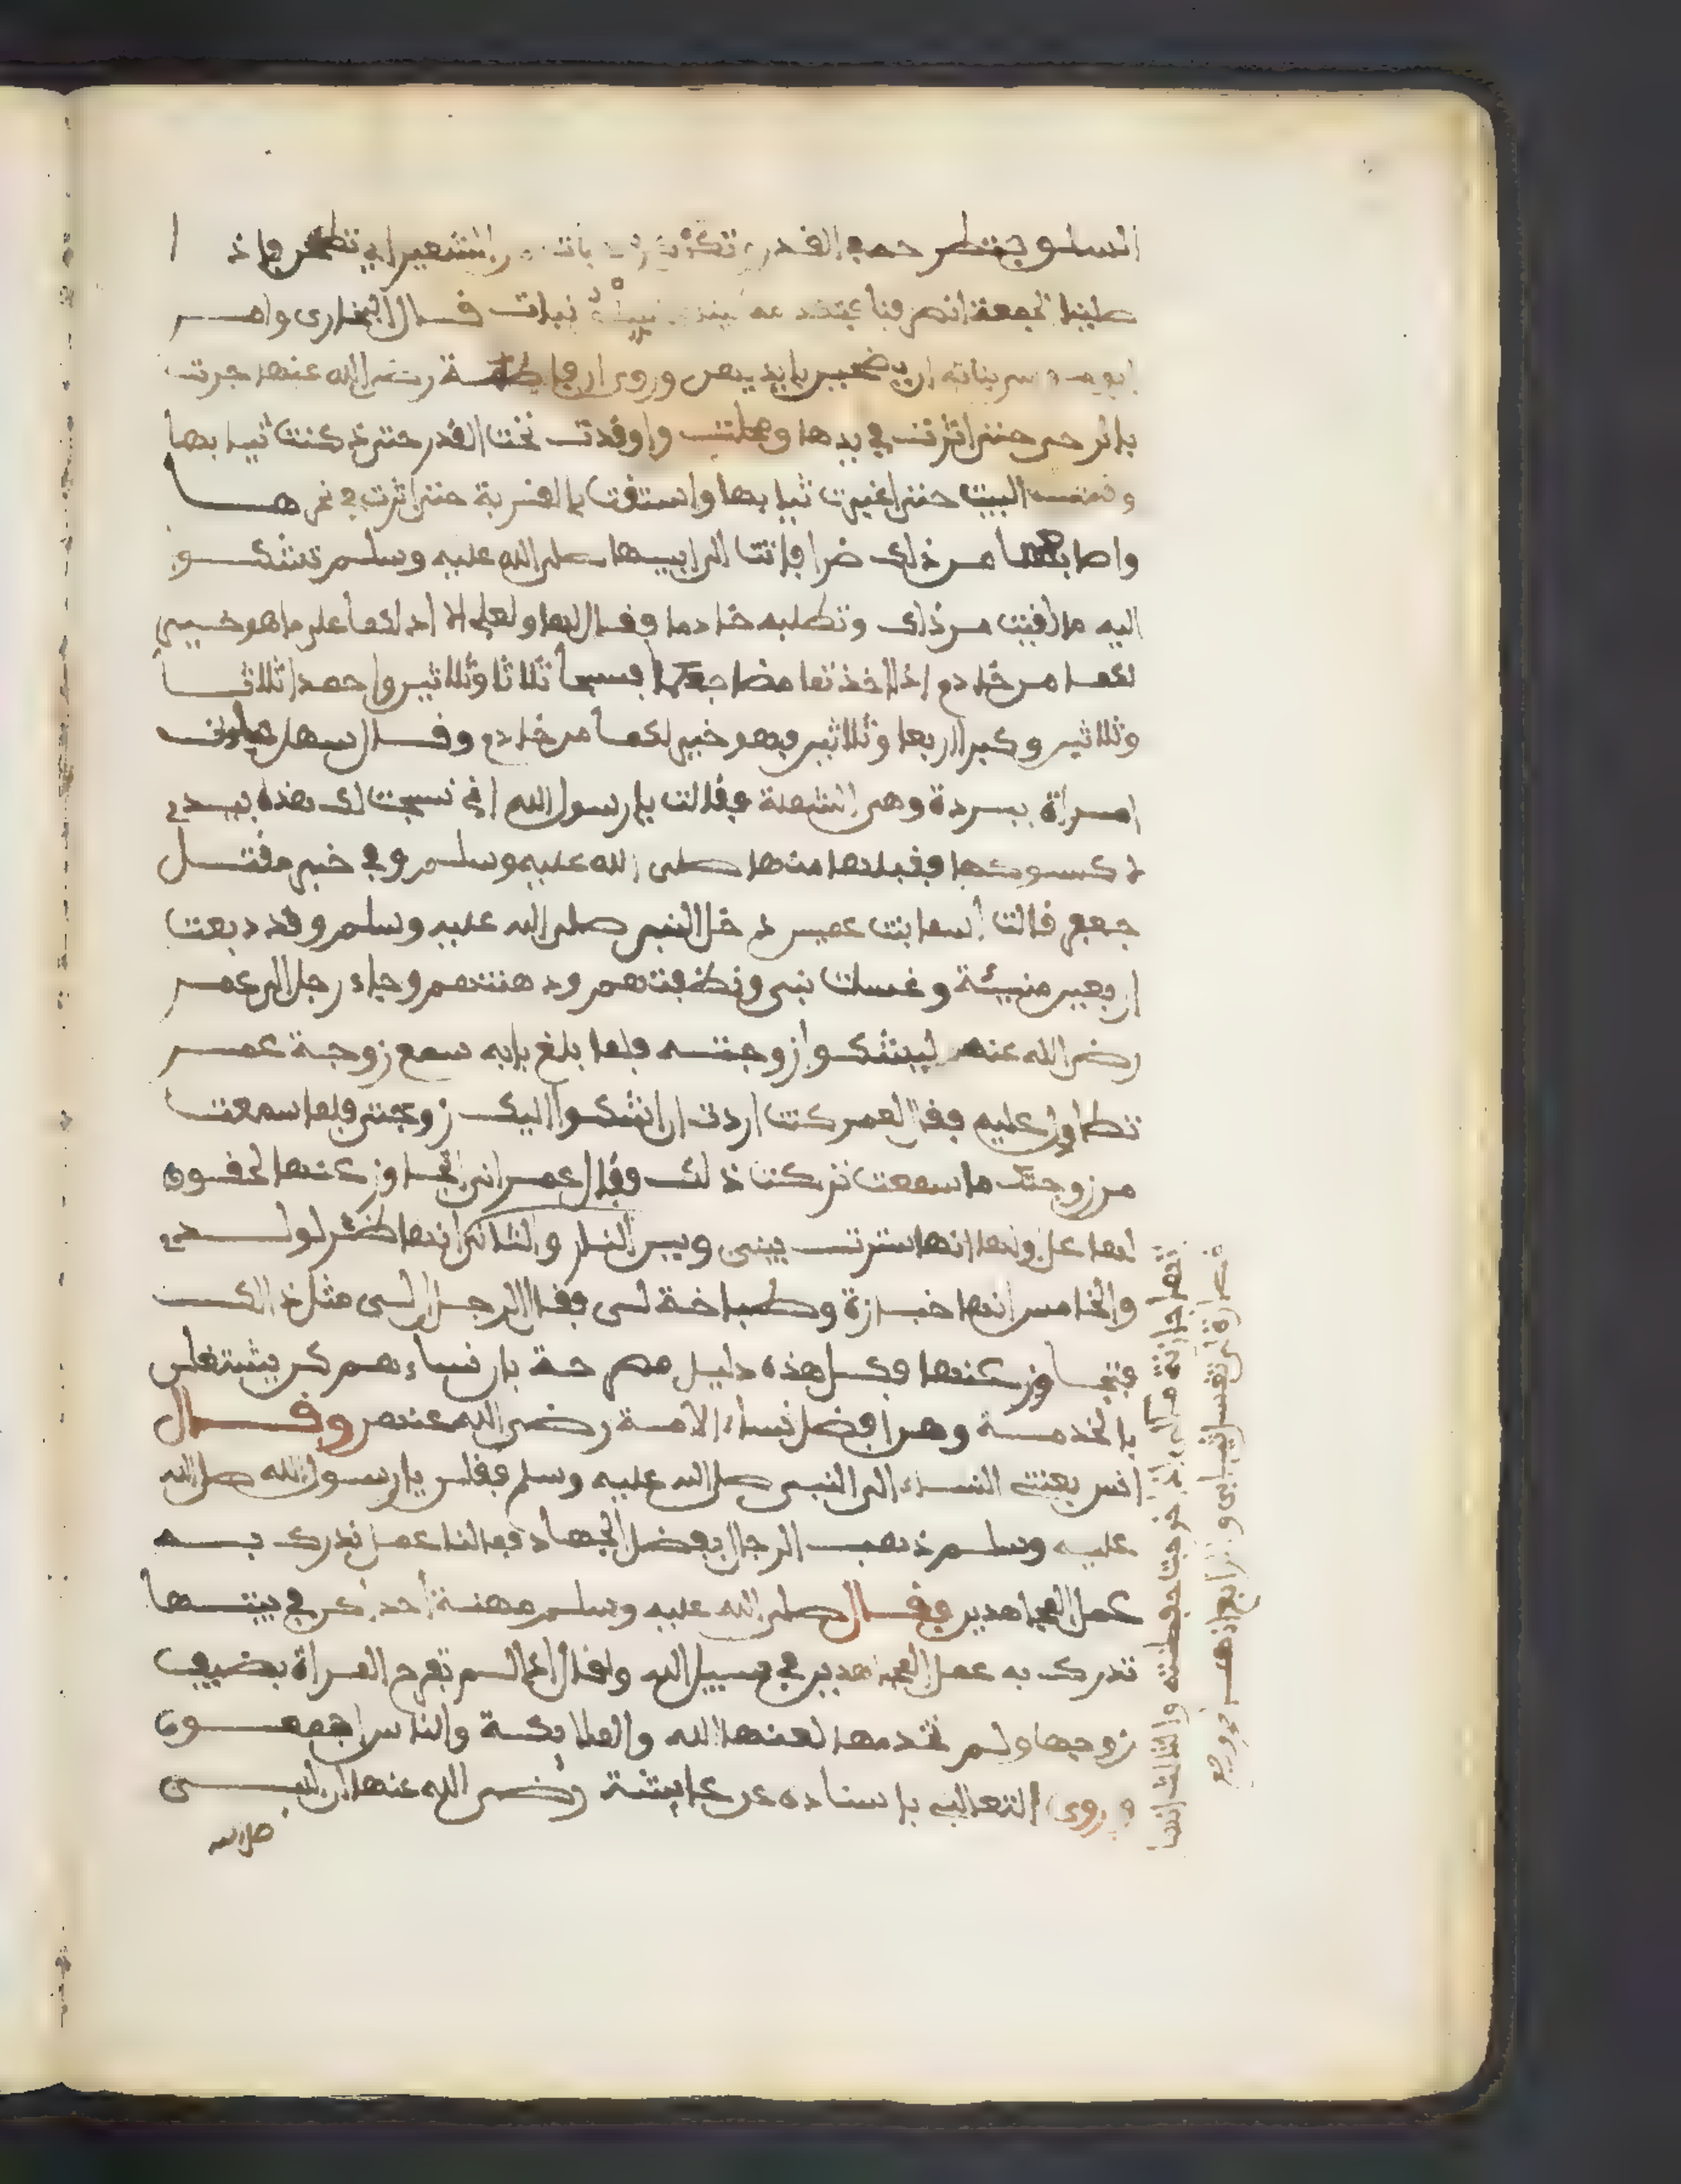 السلو فتطرحه في القدر تكركر من الشعير اي تطحن فاذا
صلينا الجمعة انصرفنا قال البخاري وامر
ابو موسى بناته ان يضحين بايديهن وروى ان فاطمة رضي الله عنها جرت
بالرحى حتى اثرت في يدها واوقدت تحت القدر حتى دكنت ثيابها
وقمت البيت حتى اغبرت ثيابها واستقت بالقربة حتى اثرت في نحرها
واصابها من ذلك ضرا فاتت الى ابيها صلى الله عليه وسلم تشكو
اليه ما لقيت من ذلك وتطلبه خادما فقال لها ولعلي الا ادلكما على ما هو خير
لكما من خادم اذا اخذتما مضاجعكما فسبحا ثلاثا وثلاثين واحمدا ثلاثا
وثلاثين وكبرا اربعا وثلاثين فهو خير لكما من خادم وقال سهل جاءت
امراة ببردة وهي الشملة فقالت يا رسول الله اني نسجت لك هذه بيدي
لاكسوكها فقبلها منها صلى الله عليه وسلم وفي خبر مقتل
جعفر قالت اسما بنت عميس دخل النبي صلى الله عليه وسلم وقد دبغت
اربعين منيئة وغسلت بني ونظفتهم ودهنتهم وجاء رجل الى عمر
رضي الله عنه ليشكوا زوجته فلما بلغ بابه سمع زوجة عمر
تطاول عليه فقال لعمر كنت اردت ان اشكوا اليك زوجتي فلما سمعت
من زوجتك ما سمعت تركت ذلك فقال عمر اني اتجاوز عنها لحقوق
لها علي اولها انها سترت بيني وبين النار والثاني انها ظئر لولدي
والخامس انها خبازة وطباخة لي فقال الرجل ان لي مثل ذالك
فتجاوز عنها فكل هذه دليل مصرحة بان نساءهم كن يشتغلن
بالخدمة وهن افضل نساء الامة رضي الله عنهم وقال
انس بعثت النساء الى النبي صلى الله عليه وسلم فقلن يا رسول الله صلى الله
عليه وسلم ذهب الرجال بفضل الجهاد فما لنا عمل ندرك به
عمل المجاهدين فقال صلى الله عليه وسلم مهنة احداكن في بيتها
تدرك به عمل المجاهدين في سبيل الله وقال اذا لم تفرح المراة بضيف
زوجها ولم تخدمها لعنها الله والملائكة والناس اجمعون
وروى الثعالبي باسناده عن عايشة رضي الله عنها ان النبي
صلى الله
خرجت حفظته والثالث انها
قصارة لي تغسل ثيابي والرابع انها